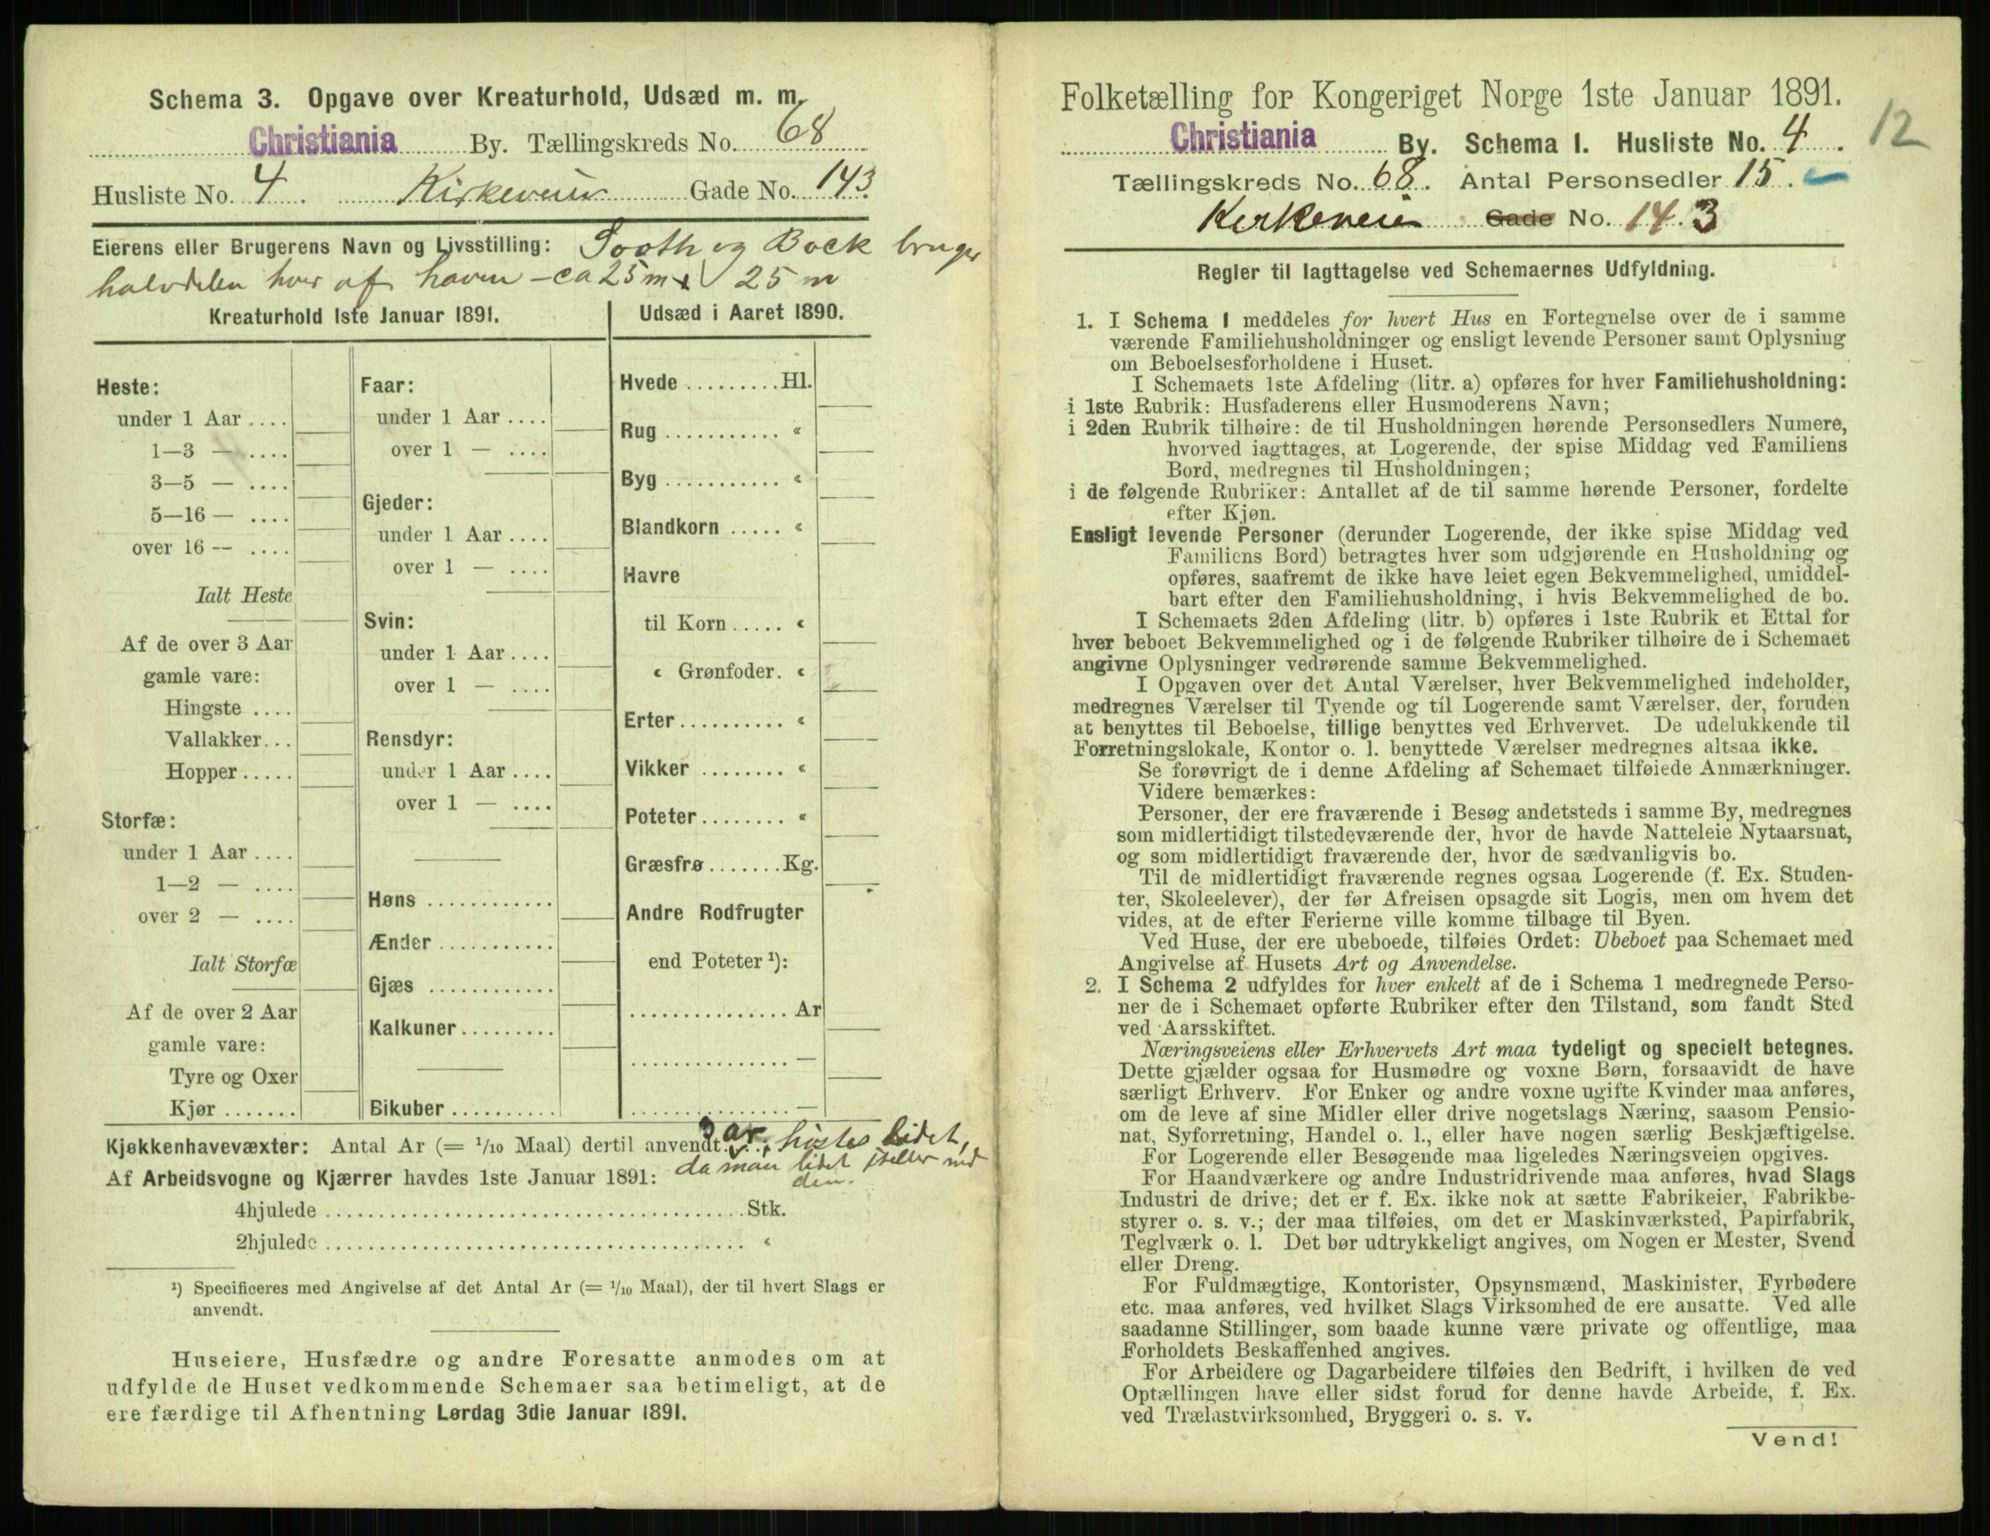 Schema 3. Opgave over Kreaturhold, Udsæd m. m.
Christiania By. Tællingskreds No. 68
Husliste No. 4. Kirkeveien Gade No. 143.
Eierens eller Brugerens Navn og Livsstilling: Sooth og Bock bruger
halvdelen hver af haven - ca 25 m x 25 m
Kreaturhold 1ste Januar 1891.
Heste:
under 1 Aar ....
1—3 — ....
3—5 — ....
5—16 — ....
over 16 — ....
Ialt Heste
Af de over 3 Aar
gamle vare:
Hingste ....
Vallakker...
Hopper.....
Storfæ:
under 1 Aar ....
1—2 — ....
over 2 — ....
Ialt Storfæ
Af de over 2 Aar
gamle vare:
Tyre og Oxer
Kjør .......
Faar:
under 1 Aar ....
over 1 — ....
Gjeder:
under 1 Aar ....
over 1 — ....
Svin:
under 1 Aar ....
over 1 — ....
Rensdyr:
under 1 Aar ....
over 1 — ....
Høns ............
Ænder ...........
Gjæs ............
Kalkuner.........
Bikuber ..........
Udsæd i Aaret 1890.
Hvede .........Hl.
Rug ........... «
Byg ........... «
Blandkorn ..... «
Havre
til Korn ..... «
« Grønfoder. «
Erter .......... «
Vikker ........ «
Poteter........ «
Græsfrø .......Kg.
Andre Rodfrugter
end Poteter ¹):
............... Ar
............... —
............... —
Kjøkkenhavevæxter: Antal Ar (= 1/10 Maal) dertil anvendt. 3 ar. høstes lidet,
da man lidet steller med
den.
Af Arbeidsvogne og Kjærrer havdes 1ste Januar 1891:
4hjulede ....................................... Stk.
2hjulede ....................................... «
¹) Specificeres med Angivelse af det Antal Ar (= 1/10 Maal), der til hvert Slags er
anvendt.
Huseiere, Husfædre og andre Foresatte anmodes om at
udfylde de Huset vedkommende Schemaer saa betimeligt, at de
ere færdige til Afhentning Lørdag 3die Januar 1891.
Folketælling for Kongeriget Norge 1ste Januar 1891.
12
Christiania By. Schema I. Husliste No. 4.
Tællingskreds No. 68. Antal Personsedler 15.
Kirkeveien Gade No. 143
Regler til Iagttagelse ved Schemaernes Udfyldning.
1. I Schema I meddeles for hvert Hus en Fortegnelse over de i samme
værende Familiehusholdninger og ensligt levende Personer samt Oplysning
om Beboelsesforholdene i Huset.
I Schemaets 1ste Afdeling (litr. a) opføres for hver Familiehusholdning:
i 1ste Rubrik: Husfaderens eller Husmoderens Navn;
i 2den Rubrik tilhøire: de til Husholdningen hørende Personsedlers Numere,
hvorved iagttages, at Logerende, der spise Middag ved Familiens
Bord, medregnes til Husholdningen;
i de følgende Rubriker: Antallet af de til samme hørende Personer, fordelte
efter Kjøn.
Ensligt levende Personer (derunder Logerende, der ikke spise Middag ved
Familiens Bord) betragtes hver som udgjørende en Husholdning og
opføres, saafremt de ikke have leiet egen Bekvemmelighed, umiddel-
bart efter den Familiehusholdning, i hvis Bekvemmelighed de bo.
I Schemaets 2den Afdeling (litr. b) opføres i 1ste Rubrik et Ettal for
hver beboet Bekvemmelighed og i de følgende Rubriker tilhøire de i Schemaet
angivne Oplysninger vedrørende samme Bekvemmelighed.
I Opgaven over det Antal Værelser, hver Bekvemmelighed indeholder,
medregnes Værelser til Tyende og til Logerende samt Værelser, der, foruden
at benyttes til Beboelse, tillige benyttes ved Erhvervet. De udelukkende til
Forretningslokale, Kontor o. l. benyttede Værelser medregnes altsaa ikke.
Se forøvrigt de i denne Afdeling af Schemaet tilføiede Anmærkninger.
Videre bemærkes:
Personer, der ere fraværende i Besøg andetsteds i samme By, medregnes
som midlertidigt tilstedeværende der, hvor de havde Natteleie Nytaarsnat,
og som midlertidigt fraværende der, hvor de sædvanligvis bo.
Til de midlertidigt fraværende regnes ogsaa Logerende (f. Ex. Studen-
ter, Skoleelever), der før Afreisen opsagde sit Logis, men om hvem det
vides, at de efter Ferierne ville komme tilbage til Byen.
Ved Huse, der ere ubeboede, tilføies Ordet: Ubeboet paa Schemaet med
Angivelse af Husets Art og Anvendelse.
2. I Schema 2 udfyldes for hver enkelt af de i Schema 1 medregnede Perso-
ner de i Schemaet opførte Rubriker efter den Tilstand, som fandt Sted
ved Aarsskiftet.
Næringsveiens eller Erhvervets Art maa tydeligt og specielt betegnes.
Dette gjælder ogsaa for Husmødre og voxne Børn, forsaavidt de have
særligt Erhverv. For Enker og andre voxne ugifte Kvinder maa anføres,
om de leve af sine Midler eller drive nogetslags Næring, saasom Pensio-
nat, Syforretning, Handel o. l., eller have nogen særlig Beskjæftigelse.
For Logerende eller Besøgende maa ligeledes Næringsveien opgives.
For Haandværkere og andre Industridrivende maa anføres, hvad Slags
Industri de drive; det er f. Ex. ikke nok at sætte Fabrikeier, Fabrikbe-
styrer o. s. v.; der maa tilføies, om det er Maskinværksted, Papirfabrik,
Teglværk o. l. Det bør udtrykkeligt angives, om Nogen er Mester, Svend
eller Dreng.
For Fuldmægtige, Kontorister, Opsynsmænd, Maskinister, Fyrbødere
etc. maa anføres, ved hvilket Slags Virksomhed de ere ansatte. Ved alle
saadanne Stillinger, som baade kunne være private og offentlige, maa
Forholdets Beskaffenhed angives.
For Arbeidere og Dagarbeidere tilføies den Bedrift, i hvilken de ved
Optællingen have eller sidst forud for denne havde Arbeide, f. Ex.
ved Trælastvirksomhed, Bryggeri o. s. v.
Vend!